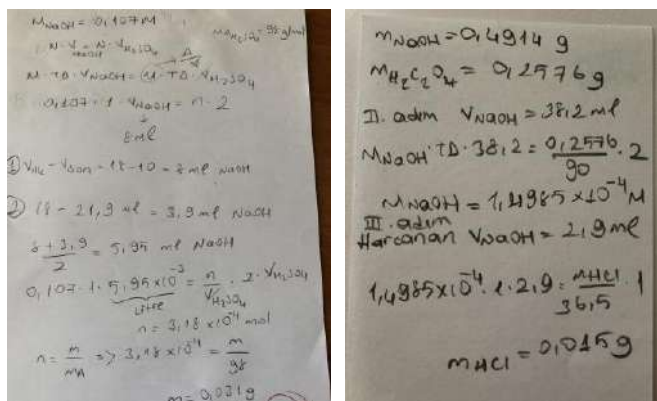 M NaOH = 0,107 M
MA H₂SO₄ = 98 g/mol
N · V NaOH = N · V H₂SO₄
M · TD · V NaOH = M · TD · V H₂SO₄
0,107 · 1 · V NaOH = n · 2
8 ml
① V ilk − V son = 18 − 10 = 8 ml NaOH
② 18 − 21,9 ml = 3,9 ml NaOH
8 + 3,9 / 2 = 5,95 ml NaOH
0,107 · 1 · 5,95 × 10⁻³ = n / V H₂SO₄ · 2 · V H₂SO₄
Litre
n = 3,18 × 10⁻⁴ mol
n = m / MA => 3,18 × 10⁻⁴ = m / 98
m = 0,031 g
m NaOH = 0,4914 g
m H₂C₂O₄ = 0,2576 g
II. adım V NaOH = 38,2 ml
M NaOH · TD · 38,2 = 0,2576 / 90 · 2
M NaOH = 1,4985 × 10⁻⁴ M
III. adım
Harcanan V NaOH = 2,9 ml
1,4985 × 10⁻⁴ · 1 · 2,9 = m HCl / 36,5 · 1
m HCl = 0,0159